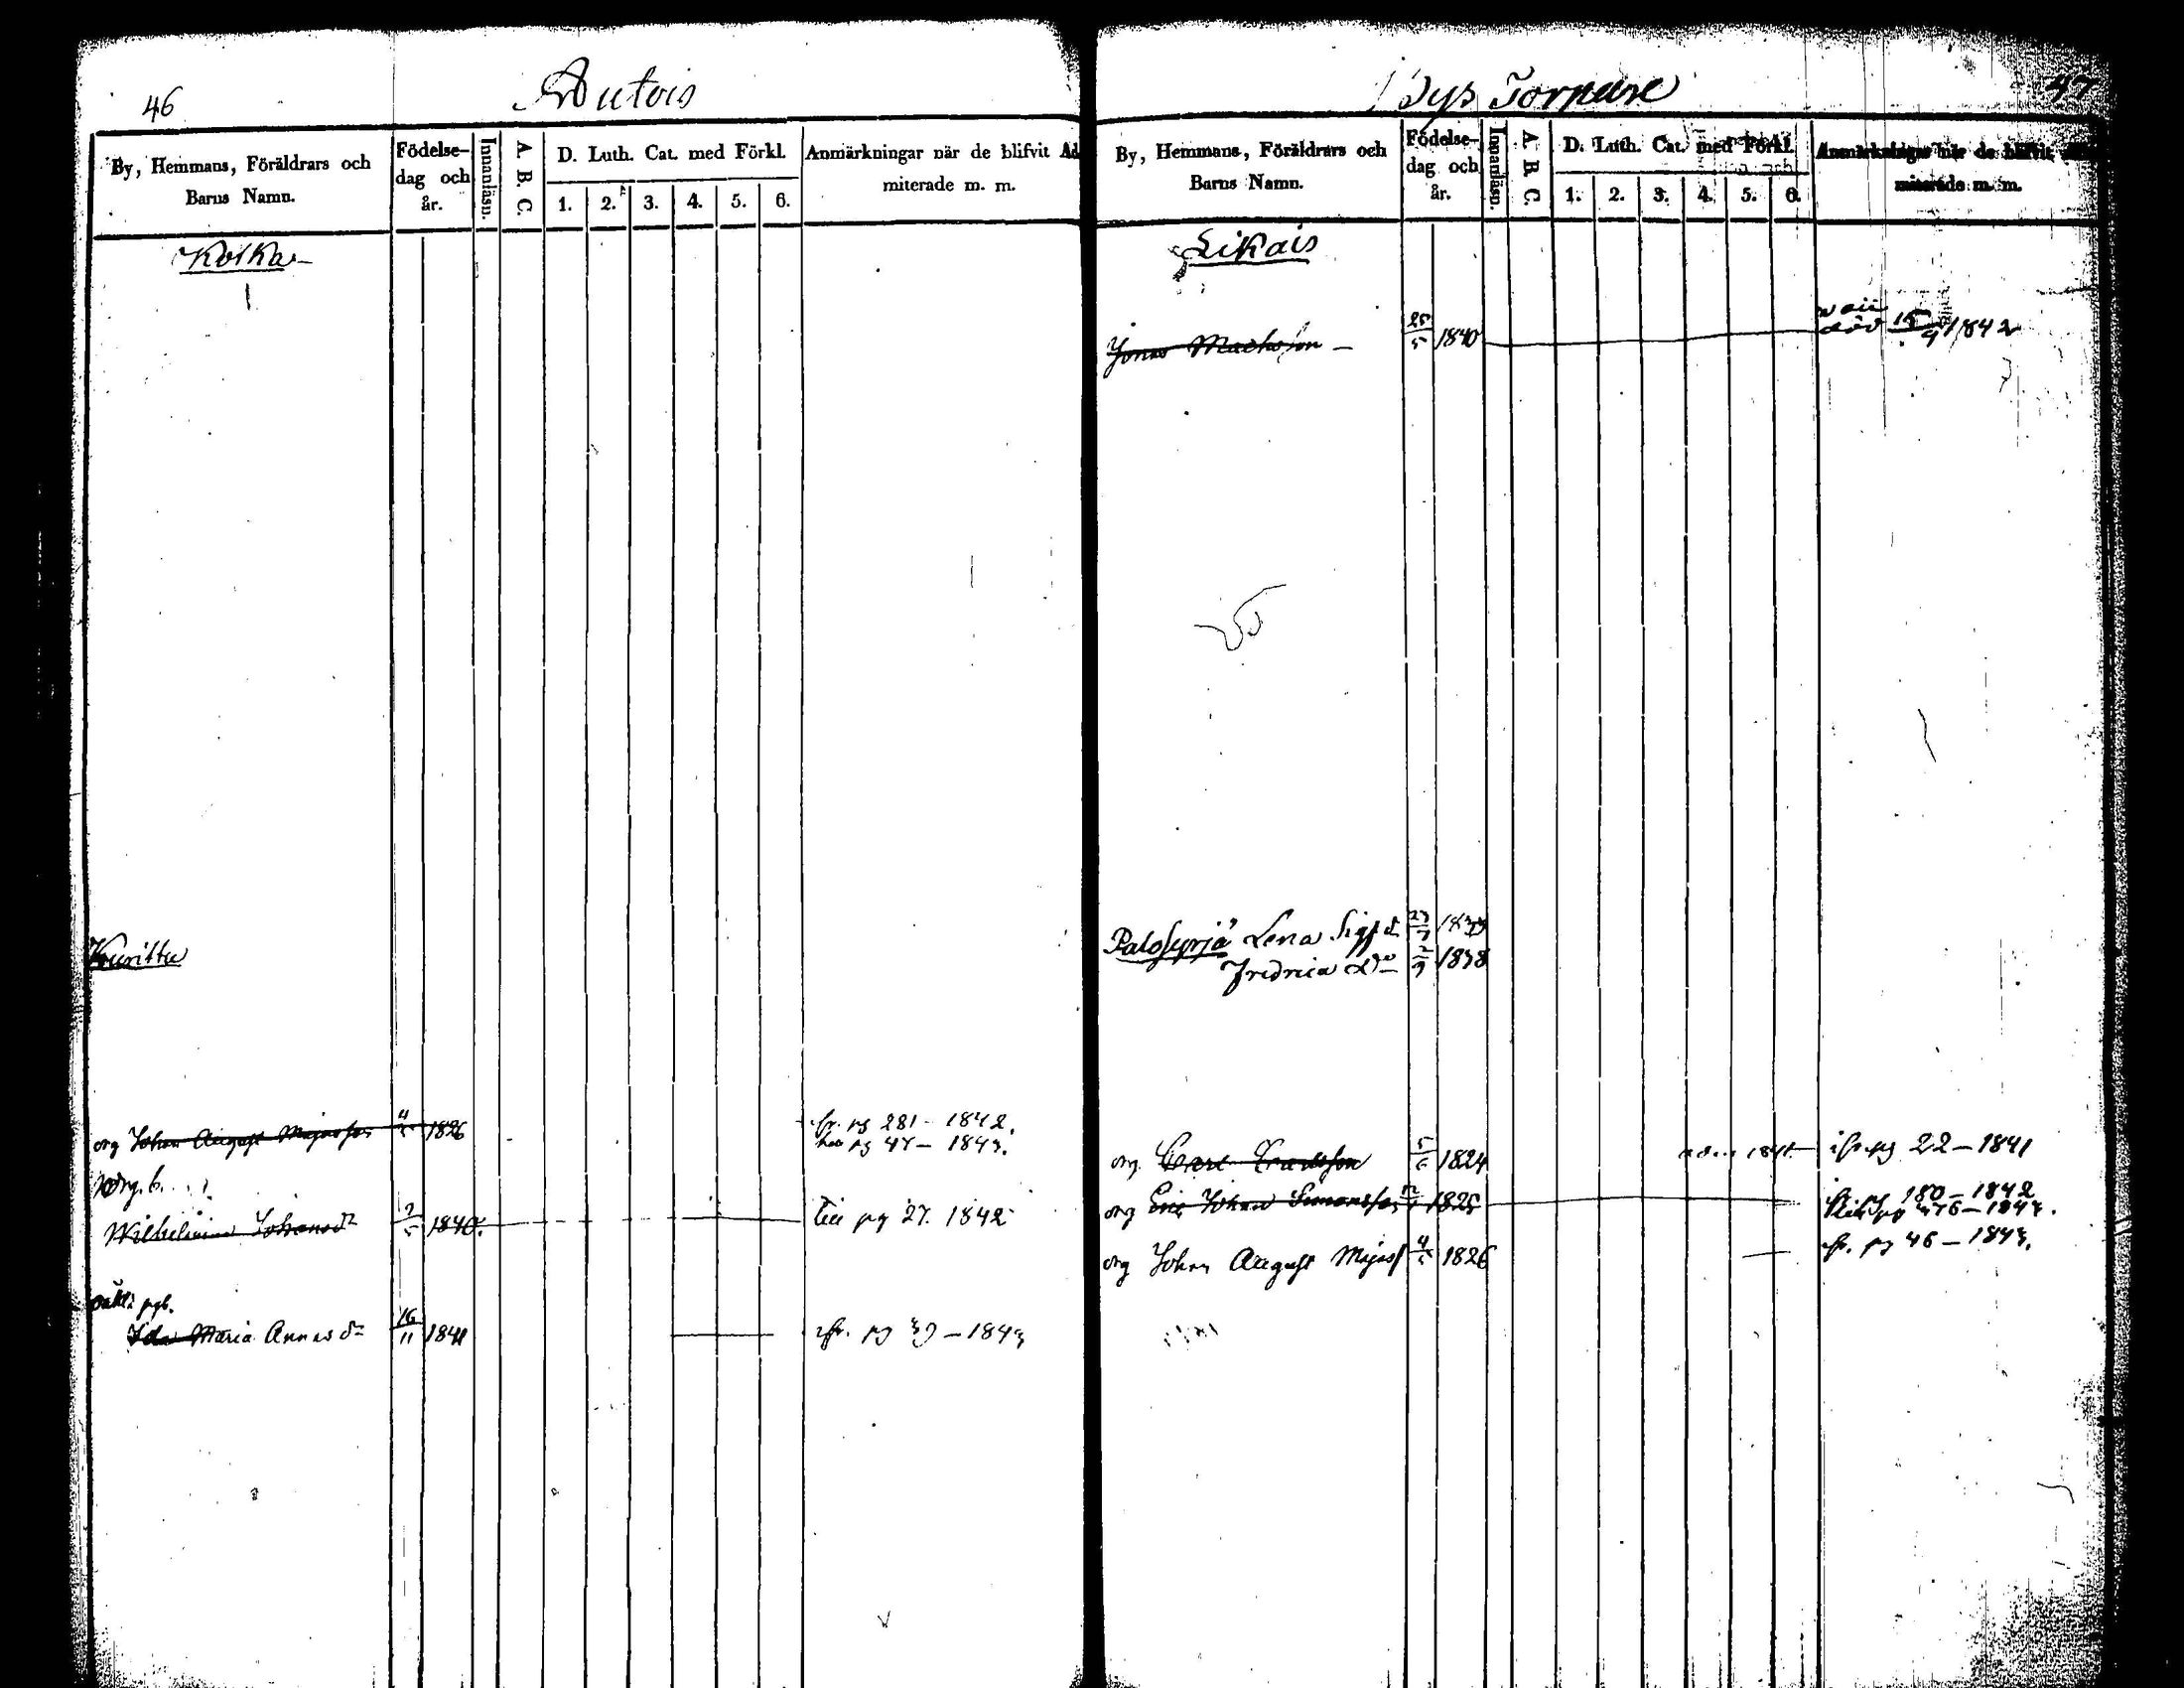 46
Autois
By, Hemmans, Föräldrars och
Barns Namn.
Födelse-
dag och
år.
Innanläsn.
A. B. C.
D. Luth. Cat. med Förkl.
1. 2. 3. 4. 5. 6.
Anmärkningar när de blifvit Ad
miterade m. m.
Kolka
Kurittu
org Johan August Majasson 4/5 1826 fr. pg 281 - 1842.
pg 47 - 1843.
Wilhelmina Johansdr 2/5 1840. till pg 27. 1842
Ida Maria Annasdr 16/11 1841 fr. pg 39 - 1843
Bys Torpare
47
By, Hemmans, Föräldrars och
Barns Namn.
Födelse-
dag och
år.
Innanläsn.
A. B. C.
D. Luth. Cat. med Förkl.
1. 2. 3. 4. 5. 6.
Anmärkningar när de blifvit
miterade m. m.
Likais
Jonas Machsson - 25/5 1840 död 15/9 1842
Palosyrjä Lena Sigfd 1833
Fredrica Do 2/9 1838
org. Carl Carlsson 5/6 1824 adm 1841 fr. pg 22 - 1841
org Eric Johan Simonsson 1825 pg 180 - 1842
org Johan August Majass 4/5 1826 fr. pg 46 - 1843.